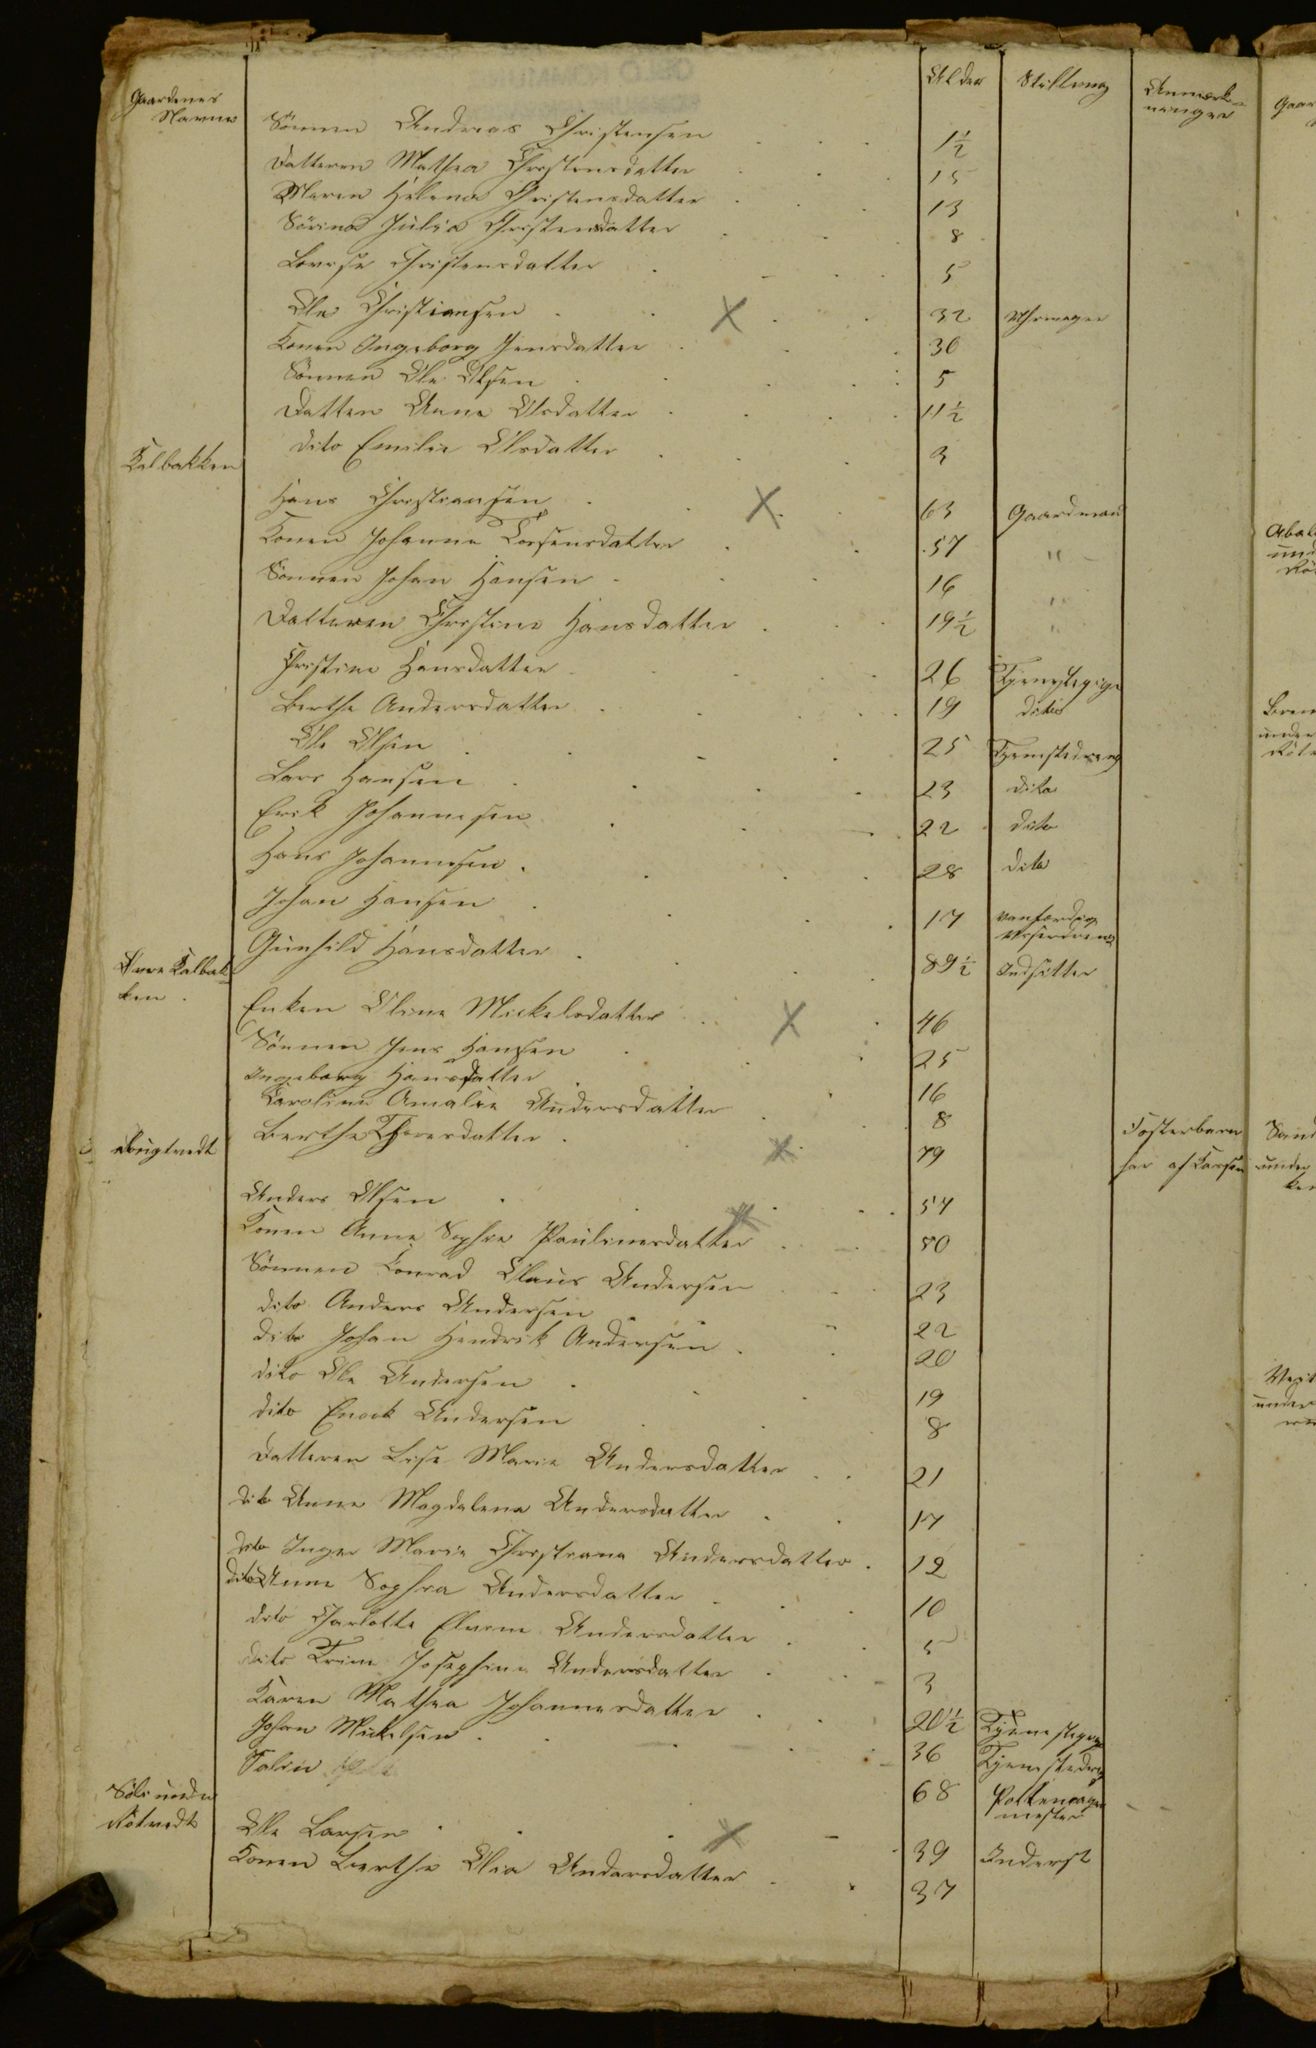 Gaardenes Navne Alder Stilling Anmærk-
ninger
Sönnen Andreas Christensen 1½
Datteren Mathea Christensdatter 15
Maren Helena Christensdatter 13
Sörine Julia Christensdatter 8
Lovise Christensdatter 5
Ole Christiansen 32 Uhrmager
Konen Ingeborg Jensdatter 30
Sönnen Ole Olsen 5
Datteren Anne Olsdatter 11½
dito Emilie Olsdatter 3
Kalbakken
Hans Christiansen 63 Gaardmand
Konen Johanne 57 "
Sönnen Johan Hansen 16 "
Datteren Christine Hansdatter 19½ "
Christine Hansdatter 26 Tjenestepige
Berthe Andersdatter 19 dito
Ole Olsen 25 Tjenestedreng
Lars Hansen 23 dito
Erik Johannesen 22 dito
Hans Johannesen 28 dito
Johan Hansen 17 vanfördig
Gunhild Hansdatter 89½ Indsitter
Övre Kalbak-
ken
Enken Oline Mickelsdatter 46
Sönnen Jens Hansen 25
Ingeborg Hansdatter 16
Karoline Amalie Andersdatter 8 Fosterbarn
Berthe Thoresdatter 79 har af
Anders Olsen 57
Konen Anne Sophie Paulinesdatter 50
Sönnen Conrad Claus Andersen 23
dito Anders Andersen 22
dito Johan Hendrik Andersen 20
dito Ole Andersen 19
dito Enock Andersen 8
Datteren Lise Marie Andersdatter 21
dito Anne Magdalena Andersdatter 17
dito Inger Marie Christiane Andersdatter 12
dito Anne Sophia Andersdatter 10
dito Charlotte Andersdatter 5
dito Trine Josephine Andersdatter 3
Karen Mathea Johannesdatter 20½ Tjenestepige
Johan Mickelsen 36 Tjenestedreng
68
mester
Rötvedt
Ole Larsen 39 Inderst
Konen Berthe Olia Andersdatter 37